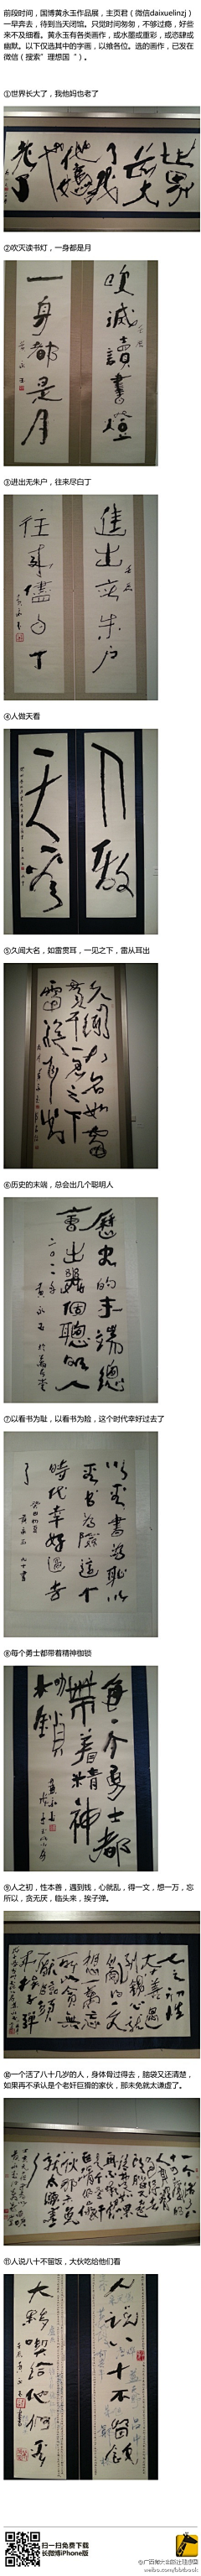 前段时间，国博黄永玉作品展，主页君（微信daixuelinzj）
一早奔去，待到当天闭馆。只觉时间匆匆，不够过瘾，好些
来不及细看。黄永玉有各类画作，或水墨或重彩，或恣肆或
幽默。以下仅选其中的字画，以飨各位。选的画作，已发在
微信（搜索”理想国“）。
①世界长大了，我他妈也老了
世界长大了
我他妈也老了
②吹灭读书灯，一身都是月
吹滅讀書燈
一身都是月
③进出无朱户，往来尽白丁
進出無朱户
往來儘白丁
④人做天看
人做
天看
⑤久闻大名，如雷贯耳，一见之下，雷从耳出
久聞大名如雷
貫耳一見之下
雷從耳出
⑥历史的末端，总会出几个聪明人
歷史的末端總
會出幾個聰明人
⑦以看书为耻，以看书为险，这个时代幸好过去了
以看書為恥以
看书為險這个
時代幸好過去
了
⑧每个勇士都带着精神枷锁
每个勇士都
帶着精神
枷鎖
⑨人之初，性本善，遇到钱，心就乱，得一文，想一万，忘
所以，贪无厌，临头来，挨子弹。
⑩一个活了八十几岁的人，身体骨过得去，脑袋又还清楚，
如果再不承认是个老奸巨猾的家伙，那未免就太谦虚了。
⑪人说八十不留饭，大伙吃给他们看
人说八十不留飯
大夥喫给他們看
扫一扫免费下载
长微博iPhone版